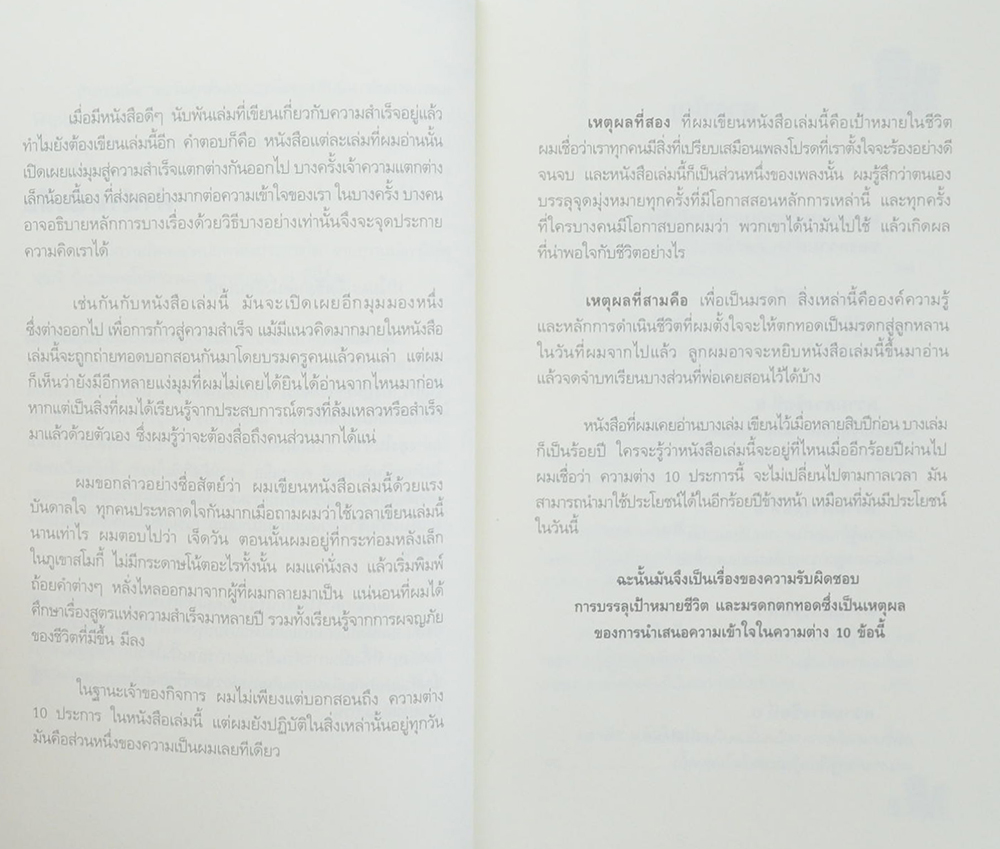 เมื่อมีหนังสือดีๆ นับพันเล่มที่เขียนเกี่ยวกับความสำเร็จอยู่แล้ว
ทำไมยังต้องเขียนเล่มนี้อีก คำตอบก็คือ หนังสือแต่ละเล่มที่ผมอ่านนั้น
เปิดเผยแง่มุมสู่ความสำเร็จแตกต่างกันออกไป บางครั้งเจ้าความแตกต่าง
เล็กน้อยนี้เอง ที่ส่งผลอย่างมากต่อความเข้าใจของเรา ในบางครั้ง บางคน
อาจอธิบายหลักการบางเรื่องด้วยวิธีบางอย่างเท่านั้นจึงจะจุดประกาย
ความคิดเราได้
เช่นกันกับหนังสือเล่มนี้ มันจะเปิดเผยอีกมุมมองหนึ่ง
ซึ่งต่างออกไป เพื่อการก้าวสู่ความสำเร็จ แม้มีแนวคิดมากมายในหนังสือ
เล่มนี้จะถูกถ่ายทอดบอกสอนกันมาโดยบรมครูคนแล้วคนเล่า แต่ผม
ก็เห็นว่ายังมีอีกหลายแง่มุมที่ผมไม่เคยได้ยินได้อ่านจากไหนมาก่อน
หากแต่เป็นสิ่งที่ผมได้เรียนรู้จากประสบการณ์ตรงที่ล้มเหลวหรือสำเร็จ
มาแล้วด้วยตัวเอง ซึ่งผมรู้ว่าจะต้องสื่อถึงคนส่วนมากได้แน่
ผมขอกล่าวอย่างซื่อสัตย์ว่า ผมเขียนหนังสือเล่มนี้ด้วยแรง
บันดาลใจ ทุกคนประหลาดใจกันมากเมื่อถามผมว่าใช้เวลาเขียนเล่มนี้
นานเท่าไร ผมตอบไปว่า เจ็ดวัน ตอนนั้นผมอยู่ที่กระท่อมหลังเล็ก
ในภูเขาสโมกี้ ไม่มีกระดาษโน้ตอะไรทั้งนั้น ผมแค่นั่งลง แล้วเริ่มพิมพ์
ถ้อยคำต่างๆ หลั่งไหลออกมาจากผู้ที่ผมกลายมาเป็น แน่นอนที่ผมได้
ศึกษาเรื่องสูตรแห่งความสำเร็จมาหลายปี รวมทั้งเรียนรู้จากการผจญภัย
ของชีวิตที่มีขึ้น มีลง
ในฐานะเจ้าของกิจการ ผมไม่เพียงแต่บอกสอนถึง ความต่าง
10 ประการ ในหนังสือเล่มนี้ แต่ผมยังปฏิบัติในสิ่งเหล่านั้นอยู่ทุกวัน
มันคือส่วนหนึ่งของความเป็นผมเลยทีเดียว
เหตุผลที่สอง ที่ผมเขียนหนังสือเล่มนี้คือเป้าหมายในชีวิต
ผมเชื่อว่าเราทุกคนมีสิ่งที่เปรียบเสมือนเพลงโปรดที่เราตั้งใจจะร้องอย่างดี
จนจบ และหนังสือเล่มนี้ก็เป็นส่วนหนึ่งของเพลงนั้น ผมรู้สึกว่าตนเอง
บรรลุจุดมุ่งหมายทุกครั้งที่มีโอกาสสอนหลักการเหล่านี้ และทุกครั้ง
ที่ใครบางคนมีโอกาสบอกผมว่า พวกเขาได้นำมันไปใช้ แล้วเกิดผล
ที่น่าพอใจกับชีวิตอย่างไร
เหตุผลที่สามคือ เพื่อเป็นมรดก สิ่งเหล่านี้คือองค์ความรู้
และหลักการดำเนินชีวิตที่ผมตั้งใจจะให้ตกทอดเป็นมรดกสู่ลูกหลาน
ในวันที่ผมจากไปแล้ว ลูกผมอาจจะหยิบหนังสือเล่มนี้ขึ้นมาอ่าน
แล้วจดจำบทเรียนบางส่วนที่พ่อเคยสอนไว้ได้บ้าง
หนังสือที่ผมเคยอ่านบางเล่ม เขียนไว้เมื่อหลายสิบปีก่อน บางเล่ม
ก็เป็นร้อยปี ใครจะรู้ว่าหนังสือเล่มนี้จะอยู่ที่ไหนเมื่ออีกร้อยปีผ่านไป
ผมเชื่อว่า ความต่าง 10 ประการนี้ จะไม่เปลี่ยนไปตามกาลเวลา มัน
สามารถนำมาใช้ประโยชน์ได้ในอีกร้อยปีข้างหน้า เหมือนที่มันมีประโยชน์
ในวันนี้
ฉะนั้นมันจึงเป็นเรื่องของความรับผิดชอบ
การบรรลุเป้าหมายชีวิต และมรดกตกทอดซึ่งเป็นเหตุผล
ของการนำเสนอความเข้าใจในความต่าง 10 ข้อนี้